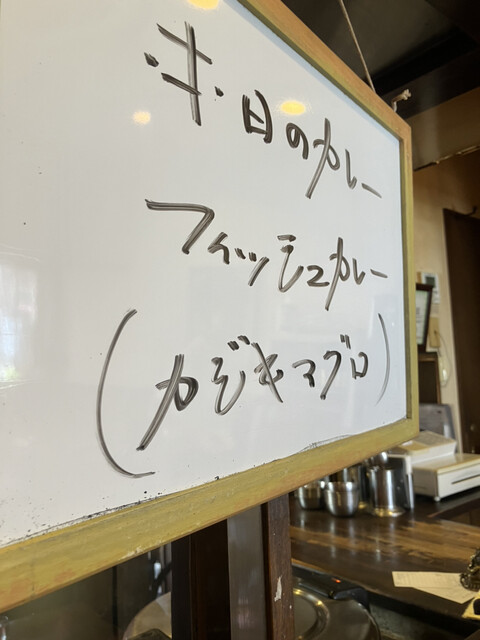 ・本・日のカレー
フィッシュカレー
(カジキマグロ)